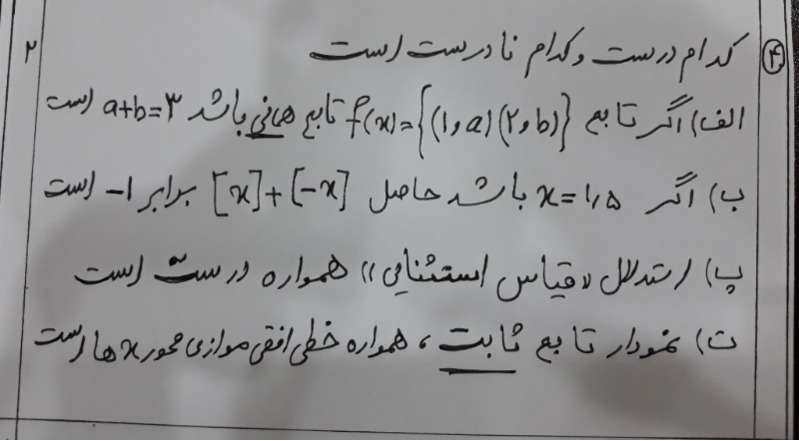 ۴ کدام درست و کدام نادرست است ۲
الف) اگر تابع f(x)={(۱,a)(۲,b)} تابع همانی باشد a+b=۳ است
ب) اگر x=۱٫۵ باشد حاصل [x]+[-x] برابر ۱- است
پ) استدلال «قیاس استثنایی» همواره درست است
ت) نمودار تابع ثابت، همواره خطی افقی موازی محور xها است